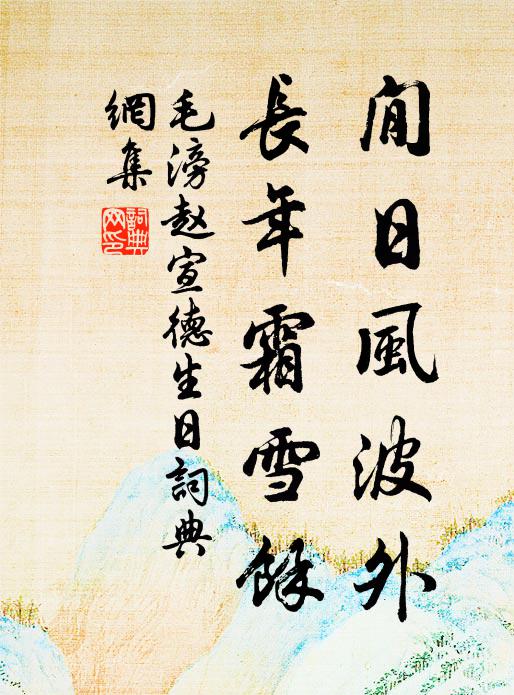 閒日風波外
長年霜雪餘
毛滂赵宣德生日詞典
網集
詞典
网印